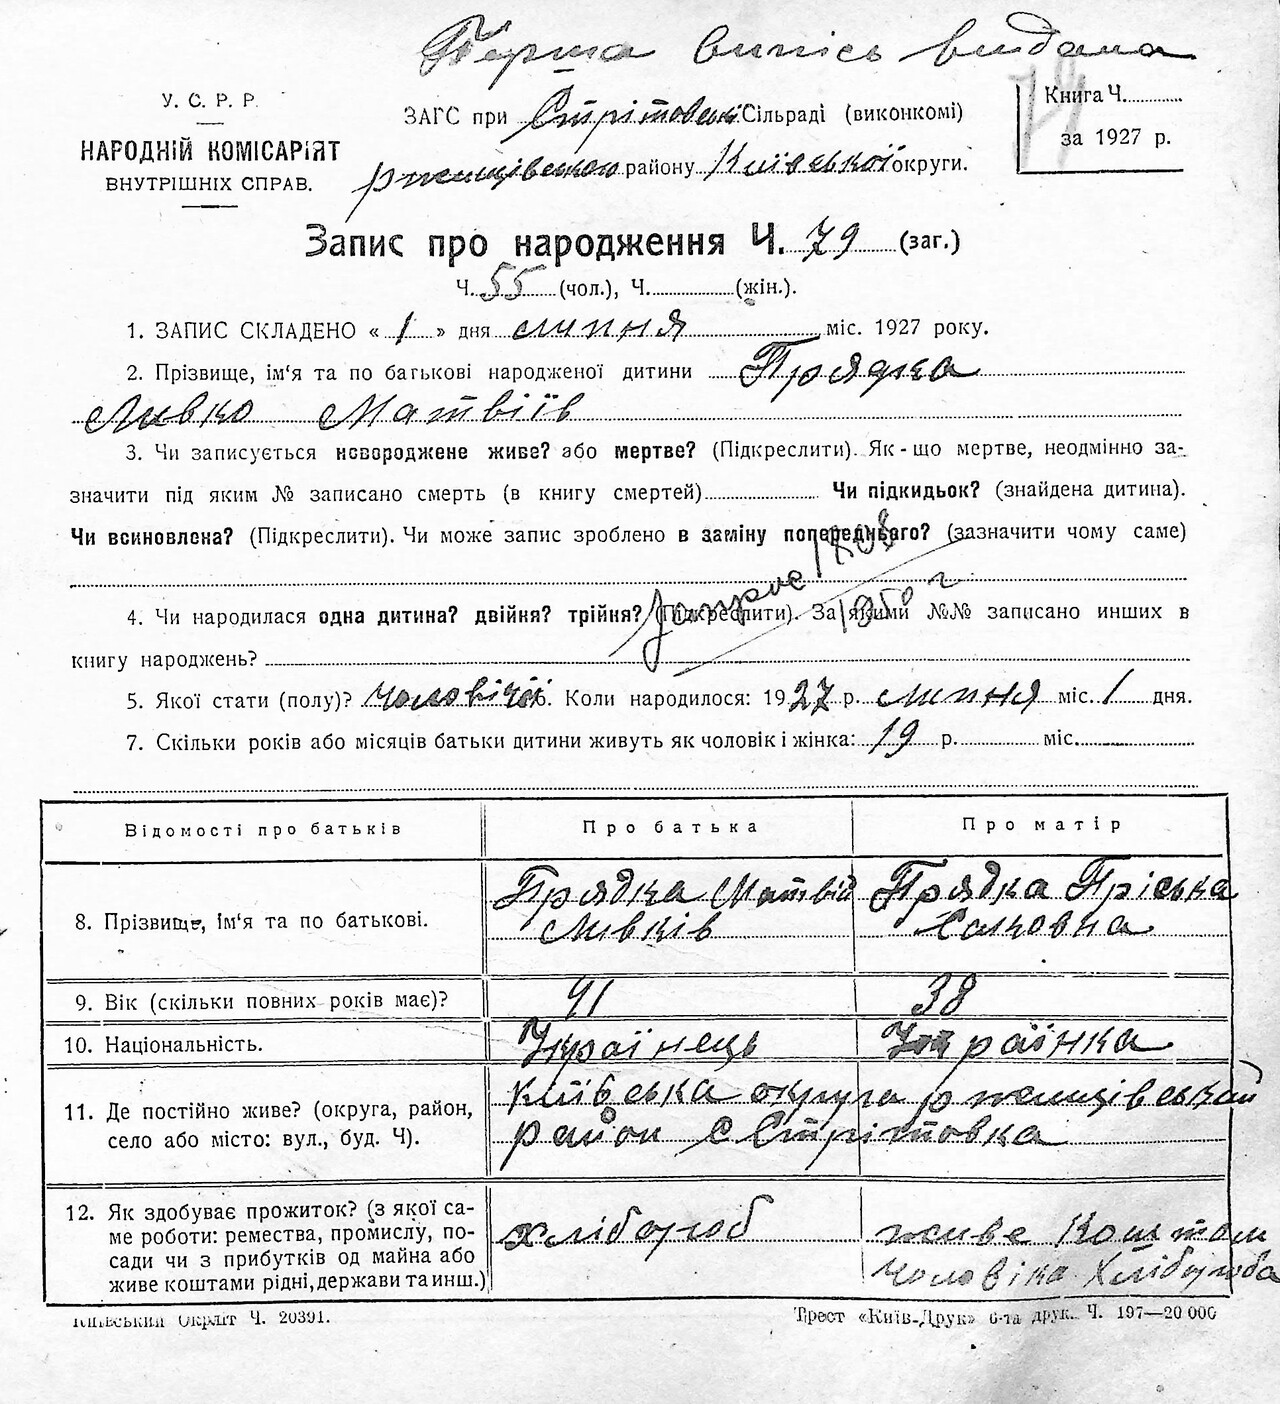 Перша випись видана
У. С. Р. Р.
НАРОДНІЙ КОМІСАРІЯТ
ВНУТРІШНІХ СПРАВ.
ЗАГС при Стрітовскі Сільраді (виконкомі)
ржищівского району Київської округи.
Книга Ч.
за 1927 р.
Запис про народження Ч. 79 (заг.)
Ч. 55 (чол.), Ч. (жін.).
1. ЗАПИС СКЛАДЕНО « 1 » дня липня міс. 1927 року.
2. Прізвище, ім'я та по батькові народженої дитини Прядка
Ливко Матвіїв
3. Чи записується новороджене живе? або мертве? (Підкреслити). Як-що мертве, неодмінно за-
значити під яким № записано смерть (в книгу смертей) Чи підкидьок? (знайдена дитина).
Чи всиновлена? (Підкреслити). Чи може запис зроблено в заміну попереднього? (зазначити чому саме)
1950 г
4. Чи народилася одна дитина? двійня? трійня? (Підкреслити). За якими №№ записано инших в
книгу народжень?
5. Якої стати (полу)? чоловічої 6. Коли народилося: 1927 р. липня міс. 1 дня.
7. Скільки років або місяців батьки дитини живуть як чоловік і жінка: 19 р. міс.
Відомості про батьків Про батька Про матір
8. Прізвище, ім'я та по батькові. Прядка Матвій Ливків Прядка Пріська
9. Вік (скільки повних років має)? 41 38
10. Національність. Українець Українка
11. Де постійно живе? (округа, район,
село або місто: вул., буд. Ч).
Київська округа ржищівський
район с Стрітовка
12. Як здобуває прожиток? (з якої са-
ме роботи: ремества, промислу, по-
сади чи з прибутків од майна або
живе коштами рідні, держави та инш.)
хлібороб
живе коштом
чоловіка хлібороба
Київський Окрліт Ч. 20391.
Трест «Київ-Друк» 6-та друк. Ч. 197—20 000